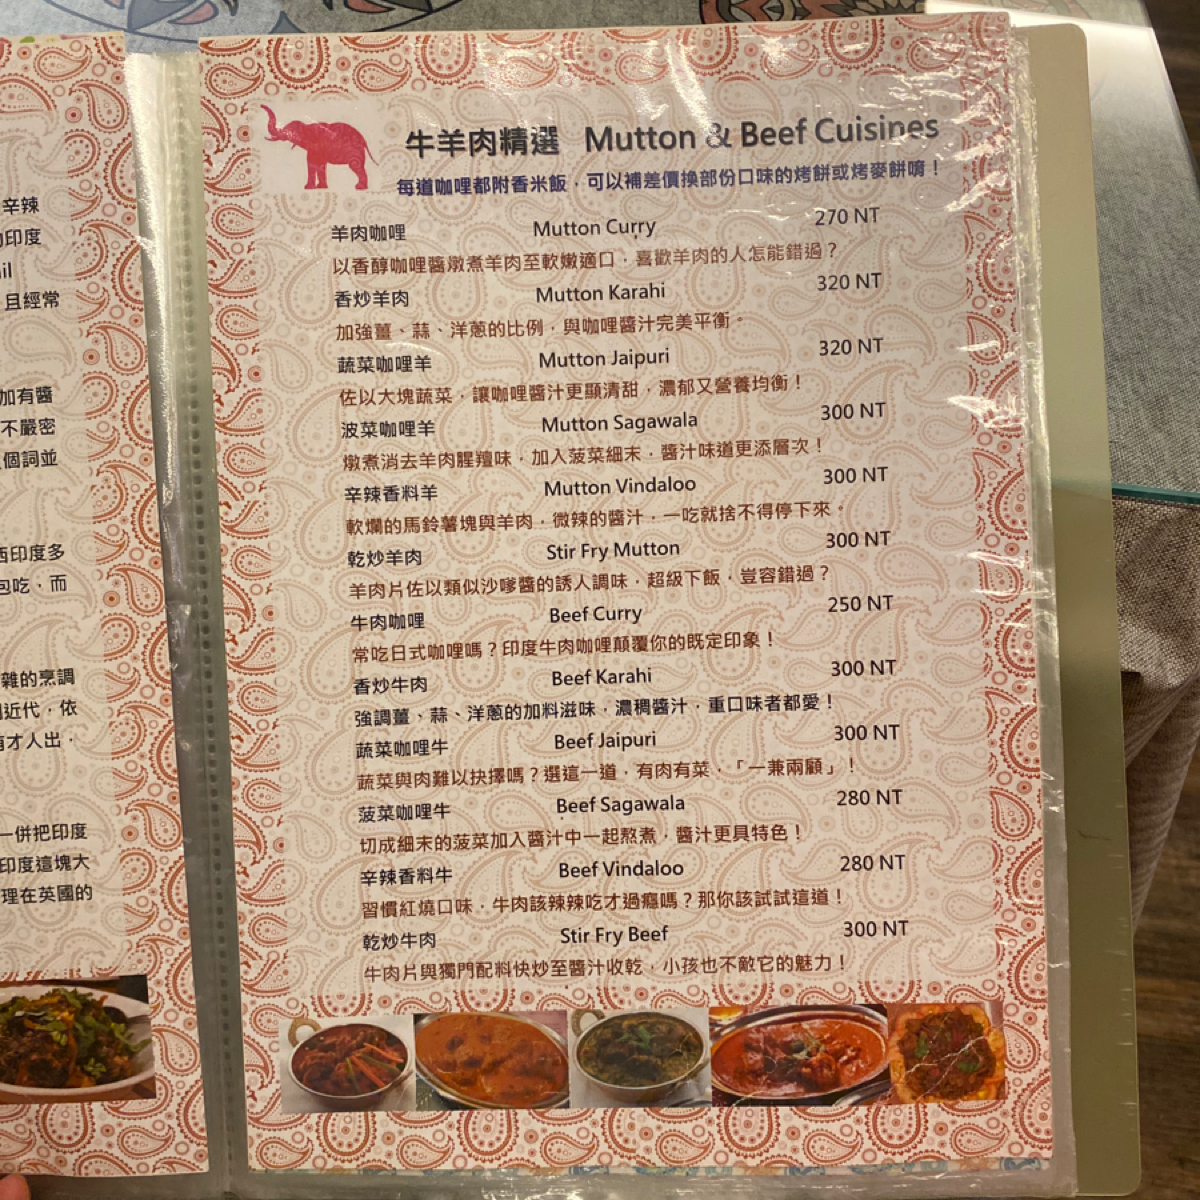 辛辣
印度
il
且經常
加有醬
不嚴密
個詞並
西印度多
包吃，而
雜的烹調
近代，依
有才人出，
一併把印度
印度這塊大
理在英國的
牛羊肉精選 Mutton & Beef Cuisines
每道咖哩都附香米飯，可以補差價換部份口味的烤餅或烤麥餅唷！
羊肉咖哩 Mutton Curry 270 NT
以香醇咖哩醬燉煮羊肉至軟嫩適口，喜歡羊肉的人怎能錯過？
香炒羊肉 Mutton Karahi 320 NT
加強薑、蒜、洋蔥的比例，與咖哩醬汁完美平衡。
蔬菜咖哩羊 Mutton Jaipuri 320 NT
佐以大塊蔬菜，讓咖哩醬汁更顯清甜，濃郁又營養均衡！
波菜咖哩羊 Mutton Sagawala 300 NT
燉煮消去羊肉腥羶味，加入菠菜細末，醬汁味道更添層次！
辛辣香料羊 Mutton Vindaloo 300 NT
軟爛的馬鈴薯塊與羊肉，微辣的醬汁，一吃就捨不得停下來。
乾炒羊肉 Stir Fry Mutton 300 NT
羊肉片佐以類似沙嗲醬的誘人調味，超級下飯，豈容錯過？
牛肉咖哩 Beef Curry 250 NT
常吃日式咖哩嗎？印度牛肉咖哩顛覆你的既定印象！
香炒牛肉 Beef Karahi 300 NT
強調薑、蒜、洋蔥的加料滋味，濃稠醬汁，重口味者都愛！
蔬菜咖哩牛 Beef Jaipuri 300 NT
蔬菜與肉難以抉擇嗎？選這一道，有肉有菜，「一兼兩顧」！
菠菜咖哩牛 Beef Sagawala 280 NT
切成細末的菠菜加入醬汁中一起熬煮，醬汁更具特色！
辛辣香料牛 Beef Vindaloo 280 NT
習慣紅燒口味，牛肉該辣辣吃才過癮嗎？那你該試試這道！
乾炒牛肉 Stir Fry Beef 300 NT
牛肉片與獨門配料快炒至醬汁收乾，小孩也不敵它的魅力！